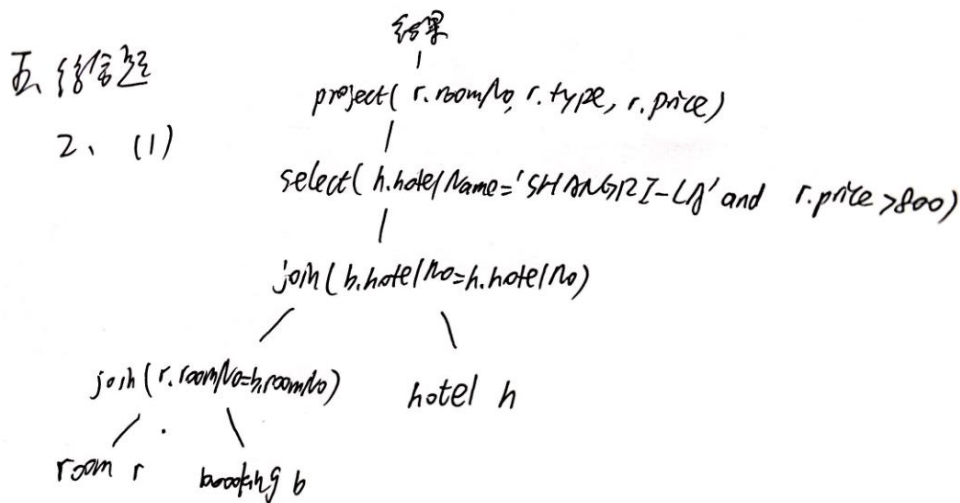 结果
五、综合题
project( r.roomNo, r.type, r.price)
2、(1)
select( h.hotelName='SHANGRI-LA' and r.price>800)
join( b.hotelNo=h.hotelNo)
join(r.roomNo=b.roomNo) hotel h
room r booking b